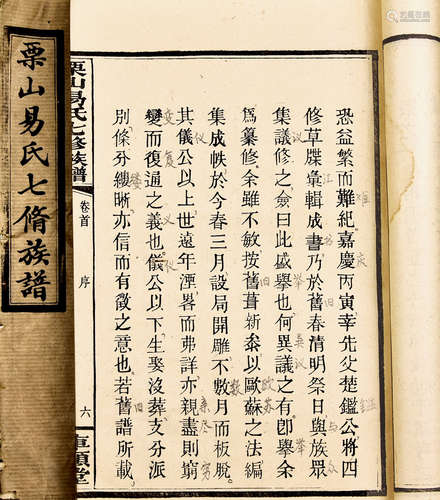 恐益繁而難紀嘉慶丙寅幸先父楚鑑公將四
修草牒彙輯成書乃於舊春清明祭日與族眾
集議修之僉曰此盛舉也何異議之有卽舉余
爲纂修余雖不敏按舊葺新叅以歐蘇之法編
集成帙於今春三月設局開雕不數月而板脫
其儀公以上世遠年湮畧而弗詳亦親盡則窮
變而復通之義也儀公以下生娶沒葬支分派
別條分縷晰亦信而有徵之意也若舊譜所載
栗山易氏七修族譜
卷首
序
六
栗山易氏七脩族譜